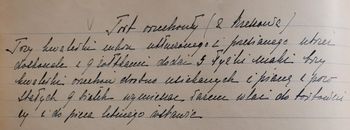 Tort orzechowy (z Krakowa)
Trzy kwaterki cukru utłuczonego i przesianego utrzeć
doskonale z 9 żółtkami dodać 3 łyżki mąki trzy
kwaterki orzechów drobno usiekanych i pianę z pozo
stałych 9 białek wymieszać razem wlać do tortowni
cy i do pieca letniego wstawić